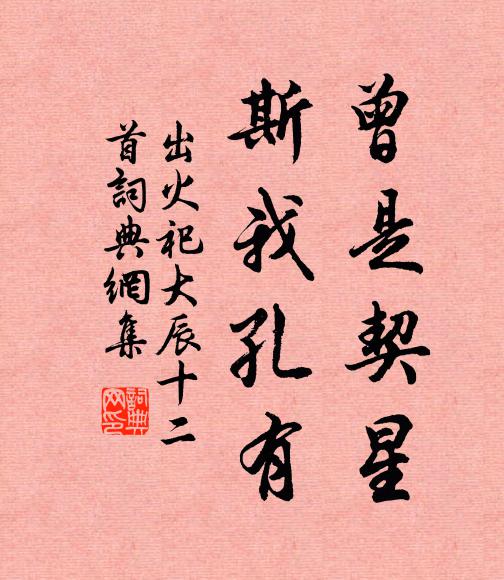 曾是契星
斯我孔有
出火祀大辰十二
首詞典網集
詞典
网印